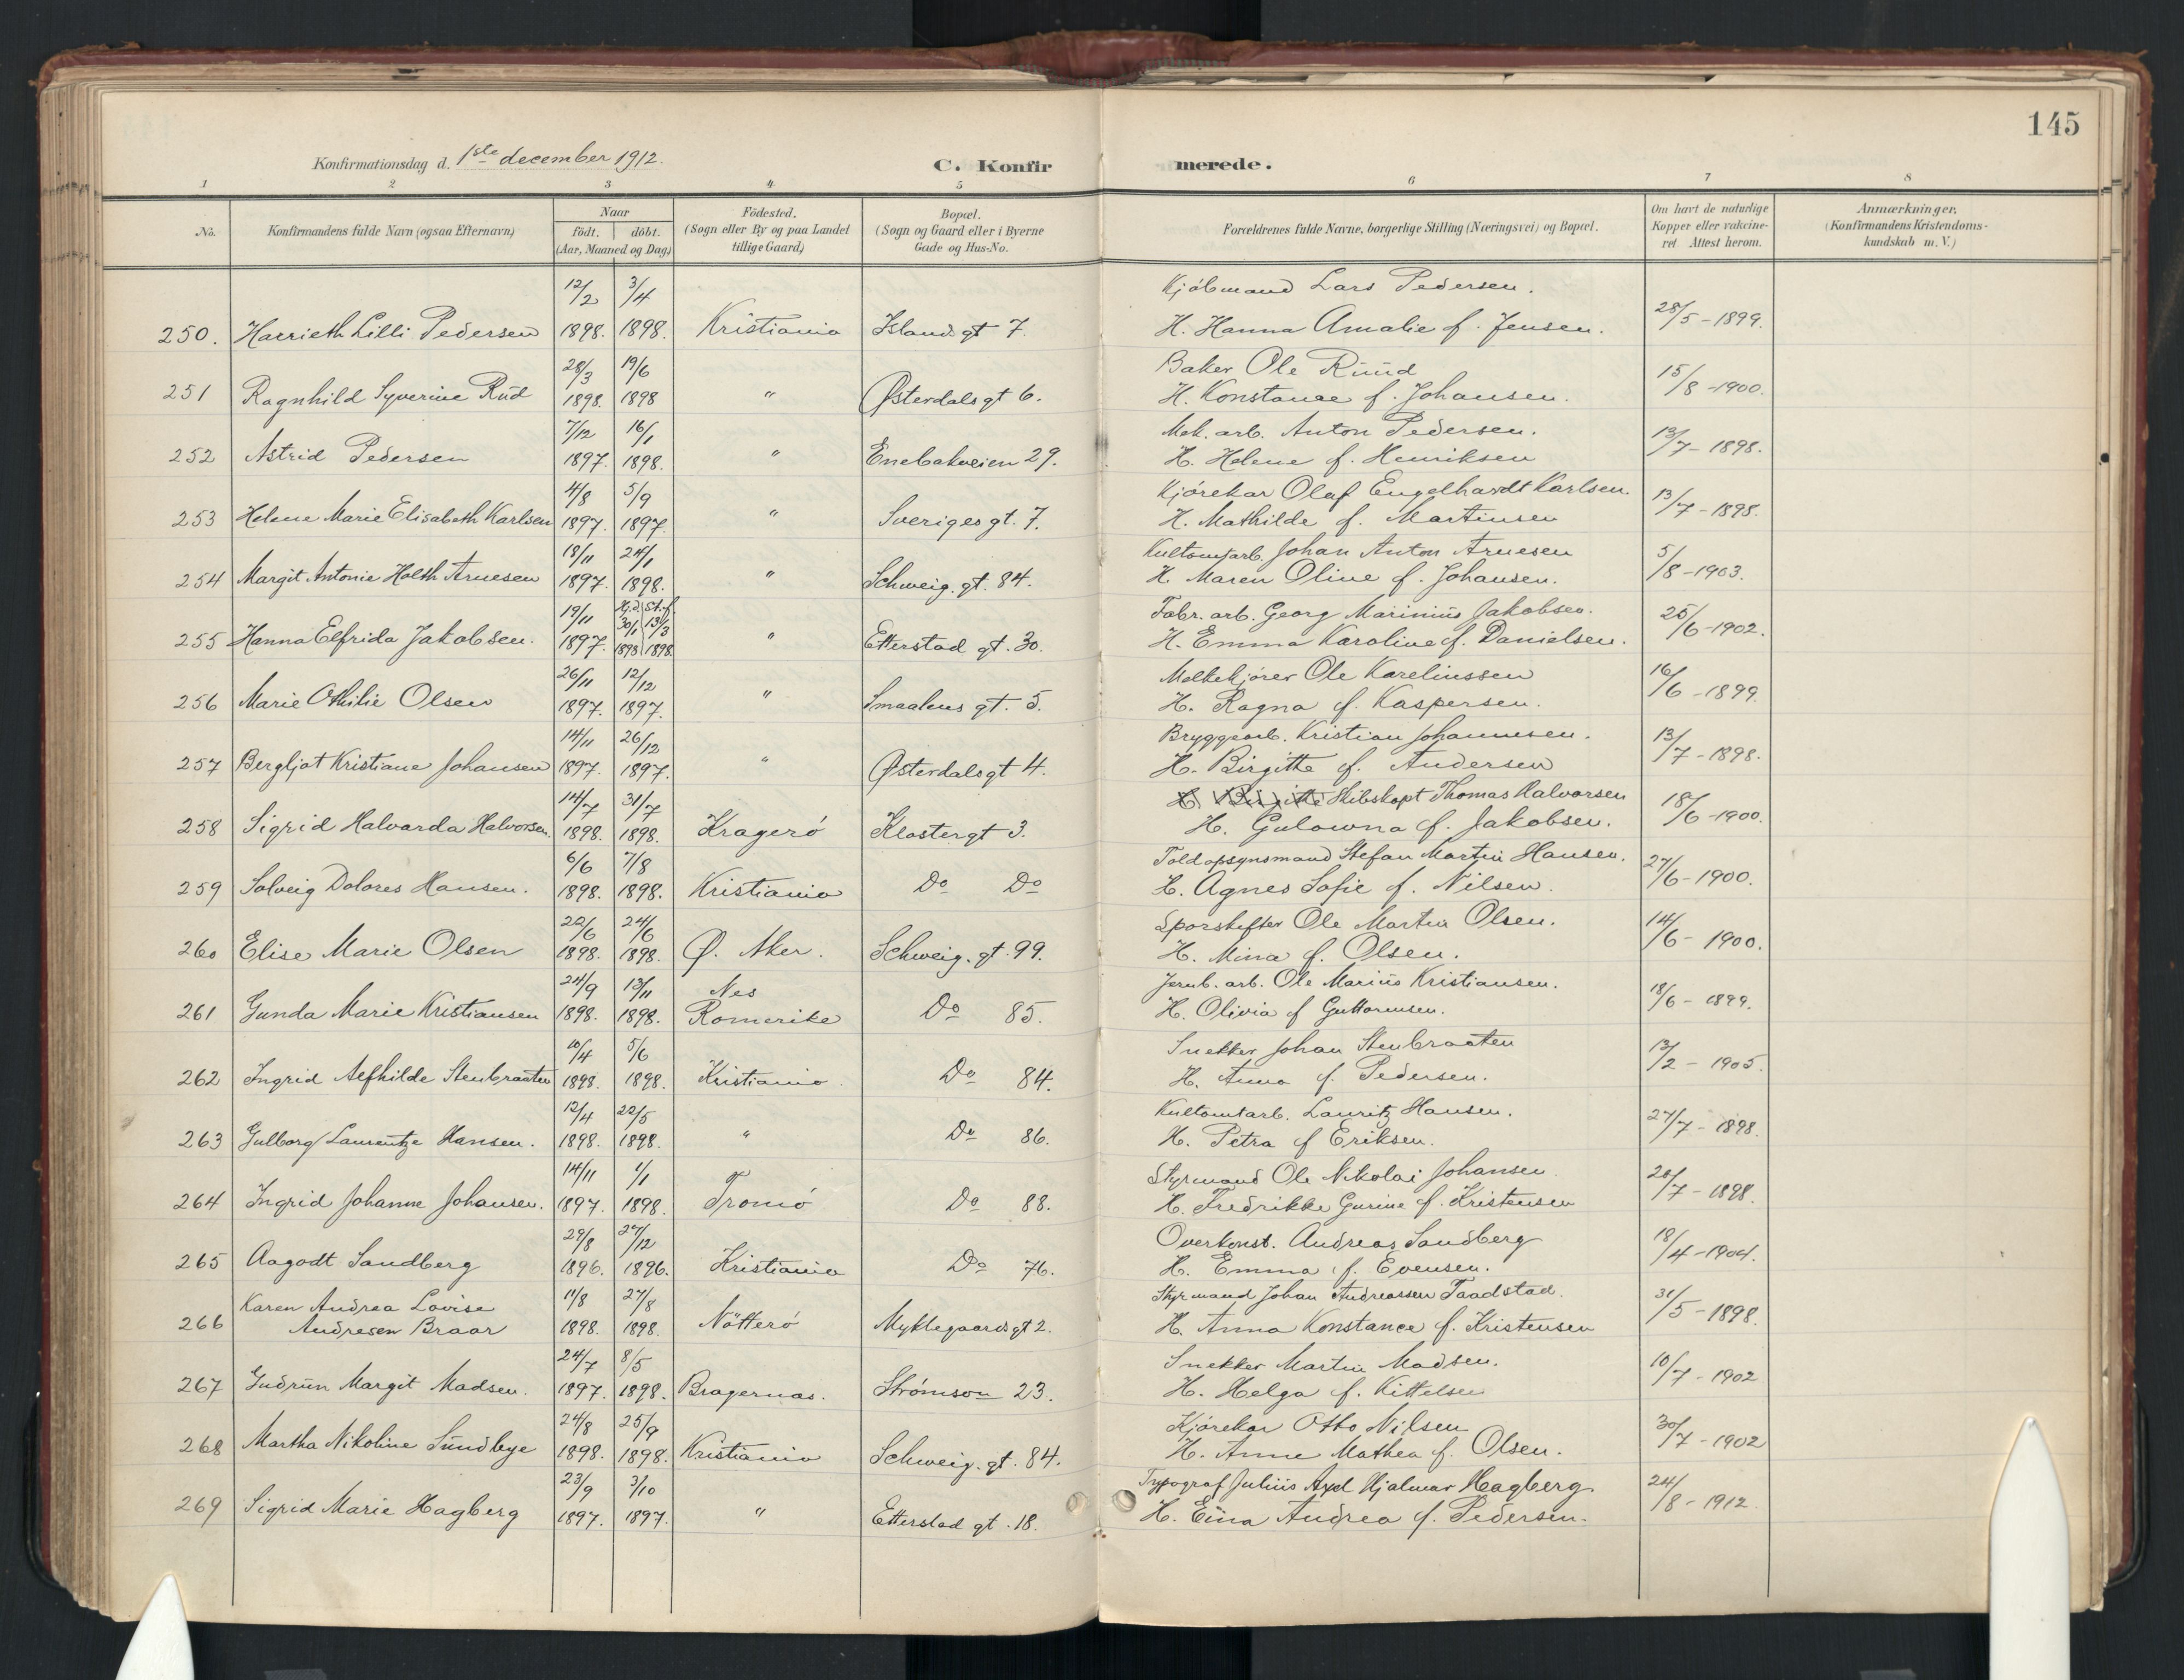 145
Konfirmationsdag d. 1ste december 1912.
C. Konfirmerede.
1 2 3 4 5 6 7 8
No. | Konfirmandens fulde Navn (ogsaa Efternavn) | Naar födt. döbt. (Aar, Maaned og Dag) | Födested. (Sogn eller By og paa Landet tillige Gaard) | Bopæl. (Sogn og Gaard eller i Byerne Gade og Hus-No. | Forældrenes fulde Navne, borgerlige Stilling (Næringsvei) og Bopæl. | Om havt de naturlige Kopper eller vakcineret. Attest herom. | Anmærkninger. (Konfirmandens Kristendomskundskab m. V.)
12/2 3/4 Kjöbmand Lars Pedersen.
250. Harrieth Lilli Pedersen 1898. 1898. Kristiania Islands gt 7. H. Hanna Amalie f. Jensen. 28/5-1899.
28/3 19/6 Baker Ole Ruud
251 Ragnhild Syverine Rud 1898. 1898 " Østerdalsgt 6. H. Konstance f. Johansen. 15/8-1900.
7/12 16/1 Mek. arb. Anton Pedersen.
252 Astrid Pedersen 1897. 1898. " Enebakveien 29. H. Helene f. Henriksen 13/7-1898.
4/8 5/9 Kjörekar Olaf Engelhardt Karlsen.
253 Helene Marie Elisabeth Karlsen 1897. 1897. " Sveriges gt. 7. H. Mathilde f. Martinsen 13/7-1898.
18/11 24/1 Kultomtarb. Johan Anton Arnesen
254 Margit Antonie Holth Arnesen 1897. 1898. " Schweig. gt. 84. H. Maren Oline f. Johansen. 5/8-1903.
19/11 Hj.d. 30/1 St.f. 13/3 Fabr. arb. Georg Marinius Jakobsen.
255 Hanna Elfrida Jakobsen. 1897. 1898 1898. " Etterstad gt. 30. H. Emma Karoline f. Danielsen. 25/6-1902.
26/11 12/12 Melkekjörer Ole Kareliussen
256 Marie Othilie Olsen 1897. 1897. " Smaalens gt. 5. H. Ragna f. Kaspersen. 16/6-1899
14/11 26/12 Bryggearb. Kristian Johannesen.
257 Bergljot Kristiane Johansen 1897. 1897. " Østerdalsgt 4. H. Birgitte f. Andersen 13/7-1898.
14/7 31/7 H. Birgitte Skibskapt Thomas Halvorsen
258 Sigrid Halvarda Halvorsen. 1898. 1898. Kragerö Klostergt 3. H. Gulowna f. Jakobsen. 18/6-1900.
6/6 7/8 Toldopsynsmand Stefan Martin Hansen.
259 Solveig Dolores Hansen. 1898. 1898. Kristiania Do Do H. Agnes Sofie f. Nilsen. 27/6-1900.
22/6 24/6 Sporskifter Ole Martin Olsen.
260 Elise Marie Olsen 1898. 1898. Ø. Aker. Schweig. gt. 99. H. Mina f. Olsen. 14/6-1900.
24/9 13/11 Nes Jernb. arb. Ole Marius Kristiansen.
261 Gunda Marie Kristiansen 1898. 1898. Romerike Do 85. H. Olivia f Guttormsen. 18/6-1899.
10/4 5/6 Snekker Johan Stenbraaten
262 Ingrid Alfhilde Stenbraaten 1898. 1898. Kristiania. Do 84. H. Anna f. Pedersen. 13/2-1905.
12/4 22/5 Kultomtarb. Lauritz Hansen.
263 Gulborg Laurentze Hansen. 1898. 1898. " Do 86. H. Petra f Eriksen. 27/7-1898.
14/11 1/1 Styrmand Ole Nikolai Johansen
264 Ingrid Johanne Johansen. 1897. 1898. Tromö Do 88. H. Fredrikke Gurine f. Kristensen 20/7-1898.
29/8 27/12 Overkonst. Andreas Sandberg
265 Aagodt Sandberg 1896. 1896. Kristiania Do 76. H. Emma f. Evensen. 18/4-1904.
Karen Andrea Lovise 11/8 27/8 Styrmand Johan Andreassen Taadstad.
266 Andresen Braar 1898. 1898. Nötterö Myklegaardsgt 2. H. Anna Konstance f. Kristensen 31/5-1898.
24/7 8/5 Snekker Martin Madsen.
267 Gudrun Margit Madsen. 1897. 1898. Bragernas. Strömson 23. H. Helga f. Kittelsen 10/7-1902
24/8 25/9 Kjörekar Otto Nilsen
268 Martha Nikoline Sundbye 1898. 1898. Kristiania Schweig. gt. 84. H. Anne Mathea f. Olsen. 30/7-1902
23/9 3/10 Typograf Julius Axel Hjalmar Hagberg
269 Sigrid Marie Hagberg 1897. 1897. " Etterstad gt. 18. H. Eina Andrea f. Pedersen. 24/8-1912.